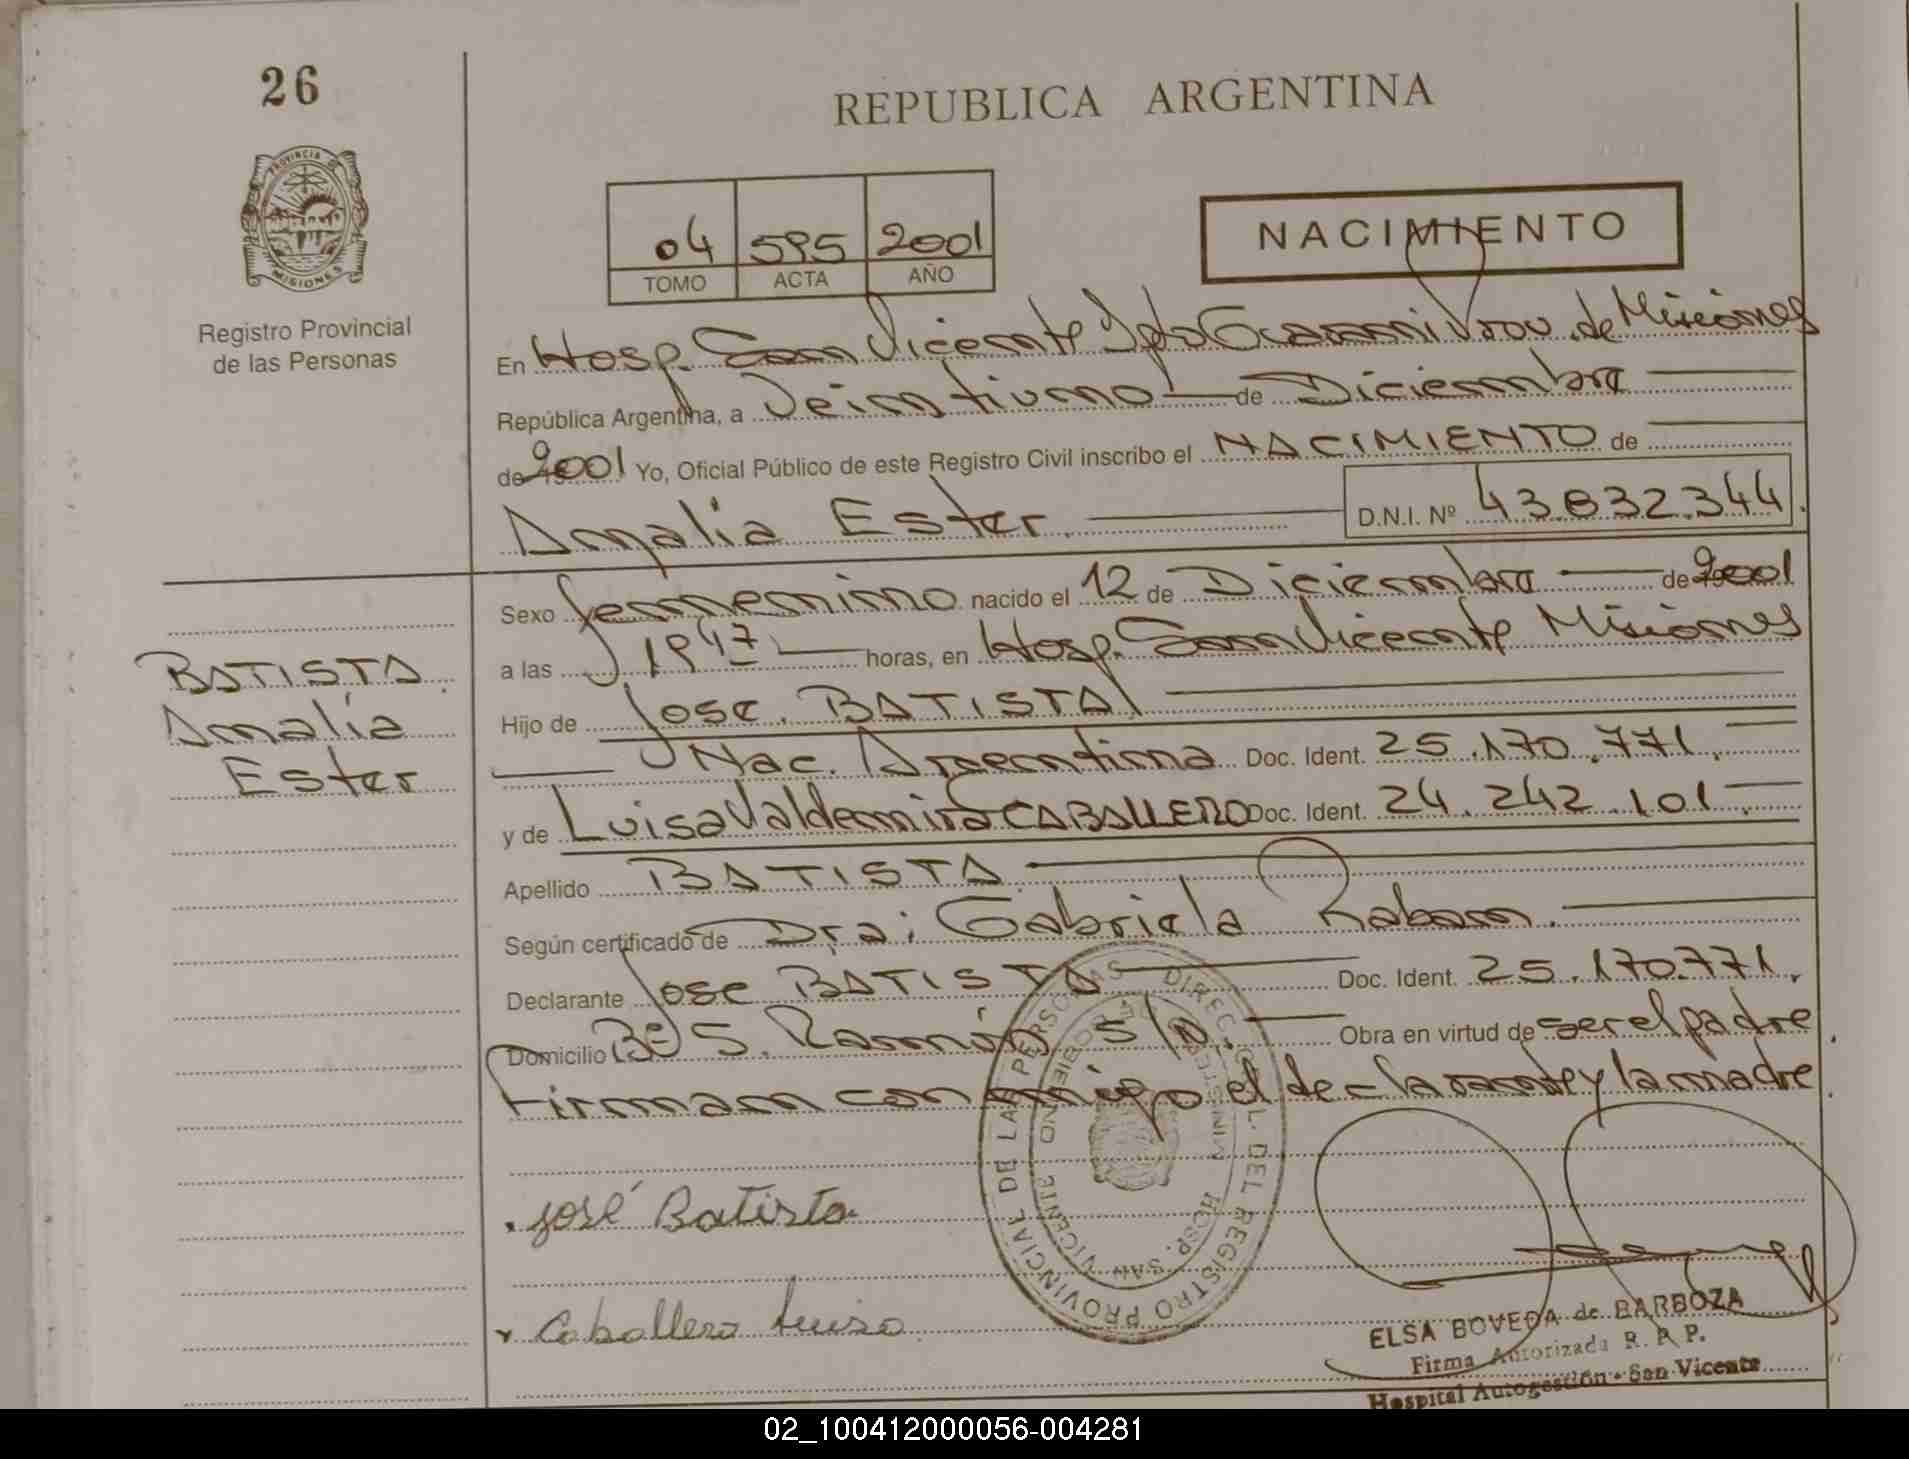 26
REPUBLICA ARGENTINA
PROVINCIA DE MISIONES
Registro Provincial
de las Personas
04 595 2001
TOMO ACTA AÑO
NACIMIENTO
En Hosp. San Vicente Dpto Guarani Prov. de Misiones
República Argentina, a Veintiuno de Diciembre
de 2001 Yo, Oficial Público de este Registro Civil inscribo el NACIMIENTO de
Amalia Ester D.N.I. Nº 43.832.344
Sexo femenino nacido el 12 de Diciembre de 2001
a las 1947 horas, en Hosp. San Vicente Misiones
Hijo de Jose BATISTA
Nac. Argentina Doc. Ident. 25.170.771
y de Luisa Valdemira CABALLERO Doc. Ident. 24.242.101
Apellido BATISTA
Según certificado de Dra: Gabriela Raban.
Declarante Jose BATISTA Doc. Ident. 25.170.771.
Domicilio Bº S. Ramón s/n. Obra en virtud de ser el padre
Firman conmigo el declarante y la madre.
BATISTA
Amalia
Ester
José Batista
Caballero Luisa
DIREC. GRAL. DEL REGISTRO PROVINCIAL DE LAS PERSONAS
MINISTERIO DE GOBIERNO
HOSP. SAN VICENTE
ELSA BOVEDA de BARBOZA
Firma Autorizada R. P. P.
Hospital Autogestión - San Vicente
02_100412000056-004281